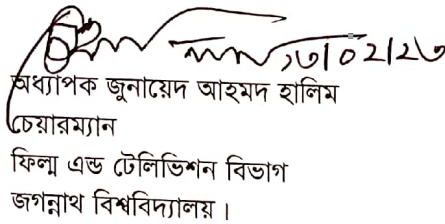 ১৩|০২|২৩
অধ্যাপক জুনায়েদ আহমদ হালিম
চেয়ারম্যান
ফিল্ম এন্ড টেলিভিশন বিভাগ
জগন্নাথ বিশ্ববিদ্যালয়।